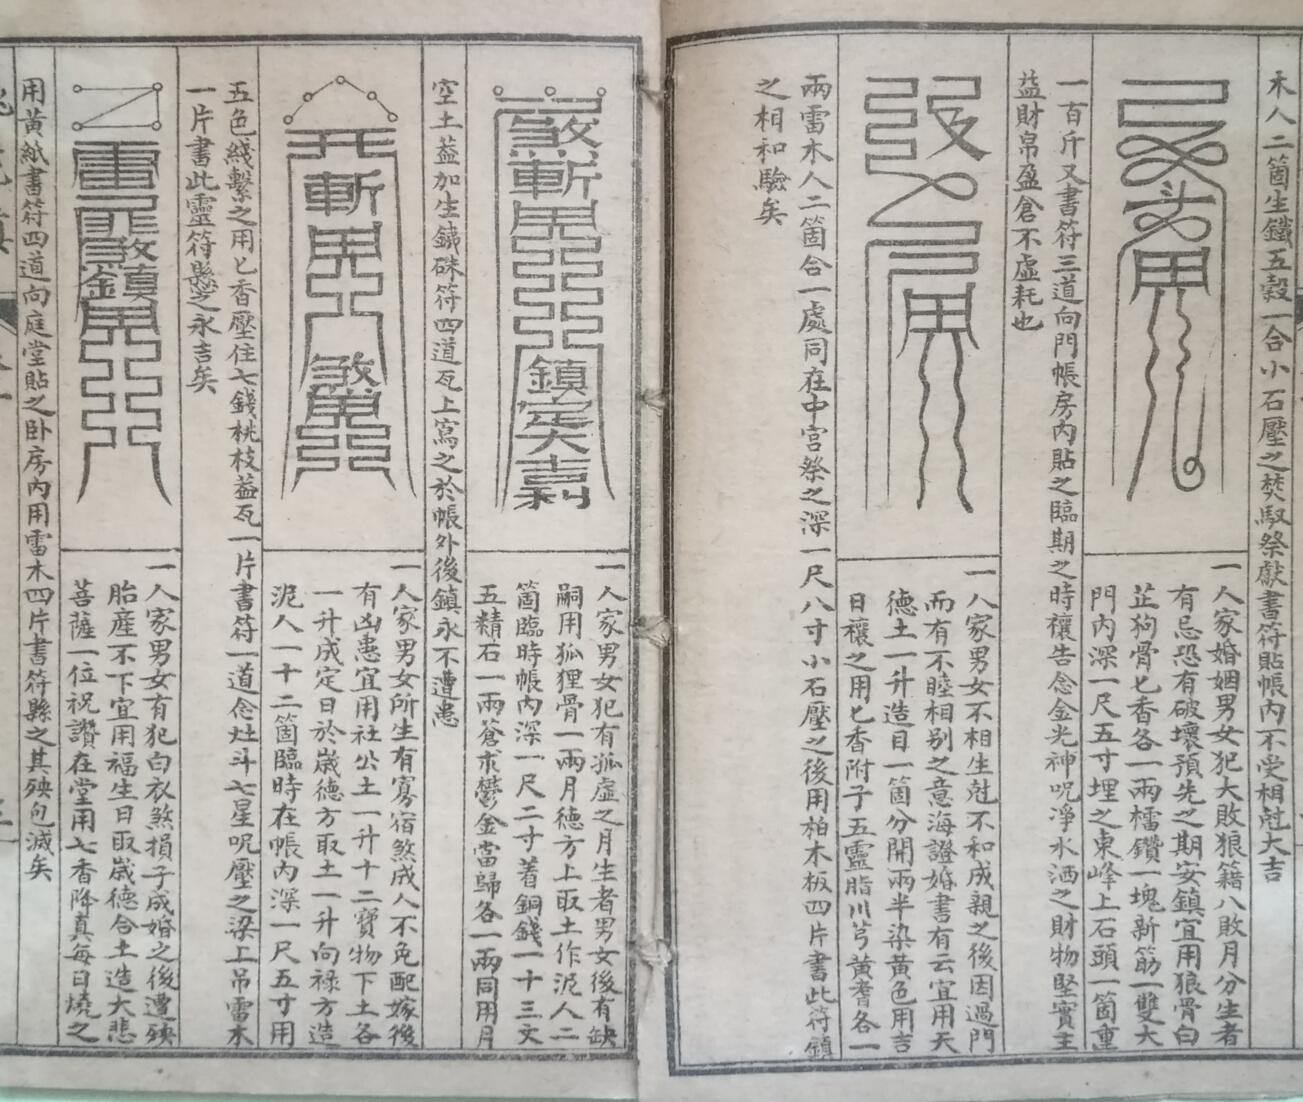 木人二箇生鐵五穀一合小石壓之焚馭祭獻書符貼帳內不受相尅大吉
一人家婚姻男女犯大敗狼籍八敗月分生者
有忌恐有破壞預先之期安鎮宜用狼骨白
芷狗骨七香各一兩檑鑽一塊新筯一雙大
門內深一尺五寸埋之東峰上石頭一箇重
一百斤又書符三道向門帳房內貼之臨期之時禳告念金光神呪淨水洒之財物堅實主
益財帛盈倉不虛耗也
一人家男女不相生尅不和成親之後因過門
而有不睦相別之意海證婚書有云宜用天
德土一升造目一箇分開兩半染黃色用吉
日禳之用七香附子五靈脂川芎黃耆各一
兩雷木人二箇合一處同在中宮祭之深一尺八寸小石壓之後用柏木板四片書此符鎮
之相和驗矣
一人家男女犯有孤虛之月生者男女後有缺
嗣用狐狸骨一兩月德方上取土作泥人二
箇臨時帳內深一尺二寸着銅錢一十三文
五精石一兩蒼朮鬱金當歸各一兩同用月
空土益加生銕硃符四道瓦上寫之於帳外後鎮永不遭恙
鎮定大吉利
一人家男女所生有寡宿煞成人不免配嫁後
有凶恙宜用社公土一升十二寶物下土各
一升成定日於歲德方取土一升向祿方造
泥人一十二箇臨時在帳內深一尺五寸用
五色綫繫之用七香壓住七錢桃枝益瓦一片書符一道念灶斗七星呪壓之梁上吊雷木
一片書此靈符懸之永吉矣
一人家男女有犯白衣煞損子成婚之後遭殃
胎産不下宜用福生日取歲德合土造大悲
菩薩一位祝讚在堂用七香降真每日燒之
用黃紙書符四道向庭堂貼之卧房內用雷木四片書符縣之其殃包滅矣